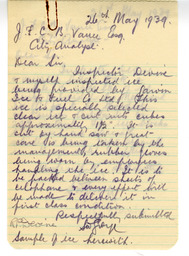 26th May 1939.
J. F. C. B. Vance Esq.
City Analyst.
Dear Sir,
Inspector Devone
& myself inspected ice
being provided by
Ice & Fuel Co Ltd. This
ice is specially selected
clear ice & cut into cubes
approximately 1½". It is
cut by hand saw & great
care is being taken by the
management, rubber gloves
being worn by employees
handling the ice. It is to
be packed between sheets of
cellophane & every effort will
be made to deliver it in
first class condition.
Respectfully submitted
Sample of ice herewith.